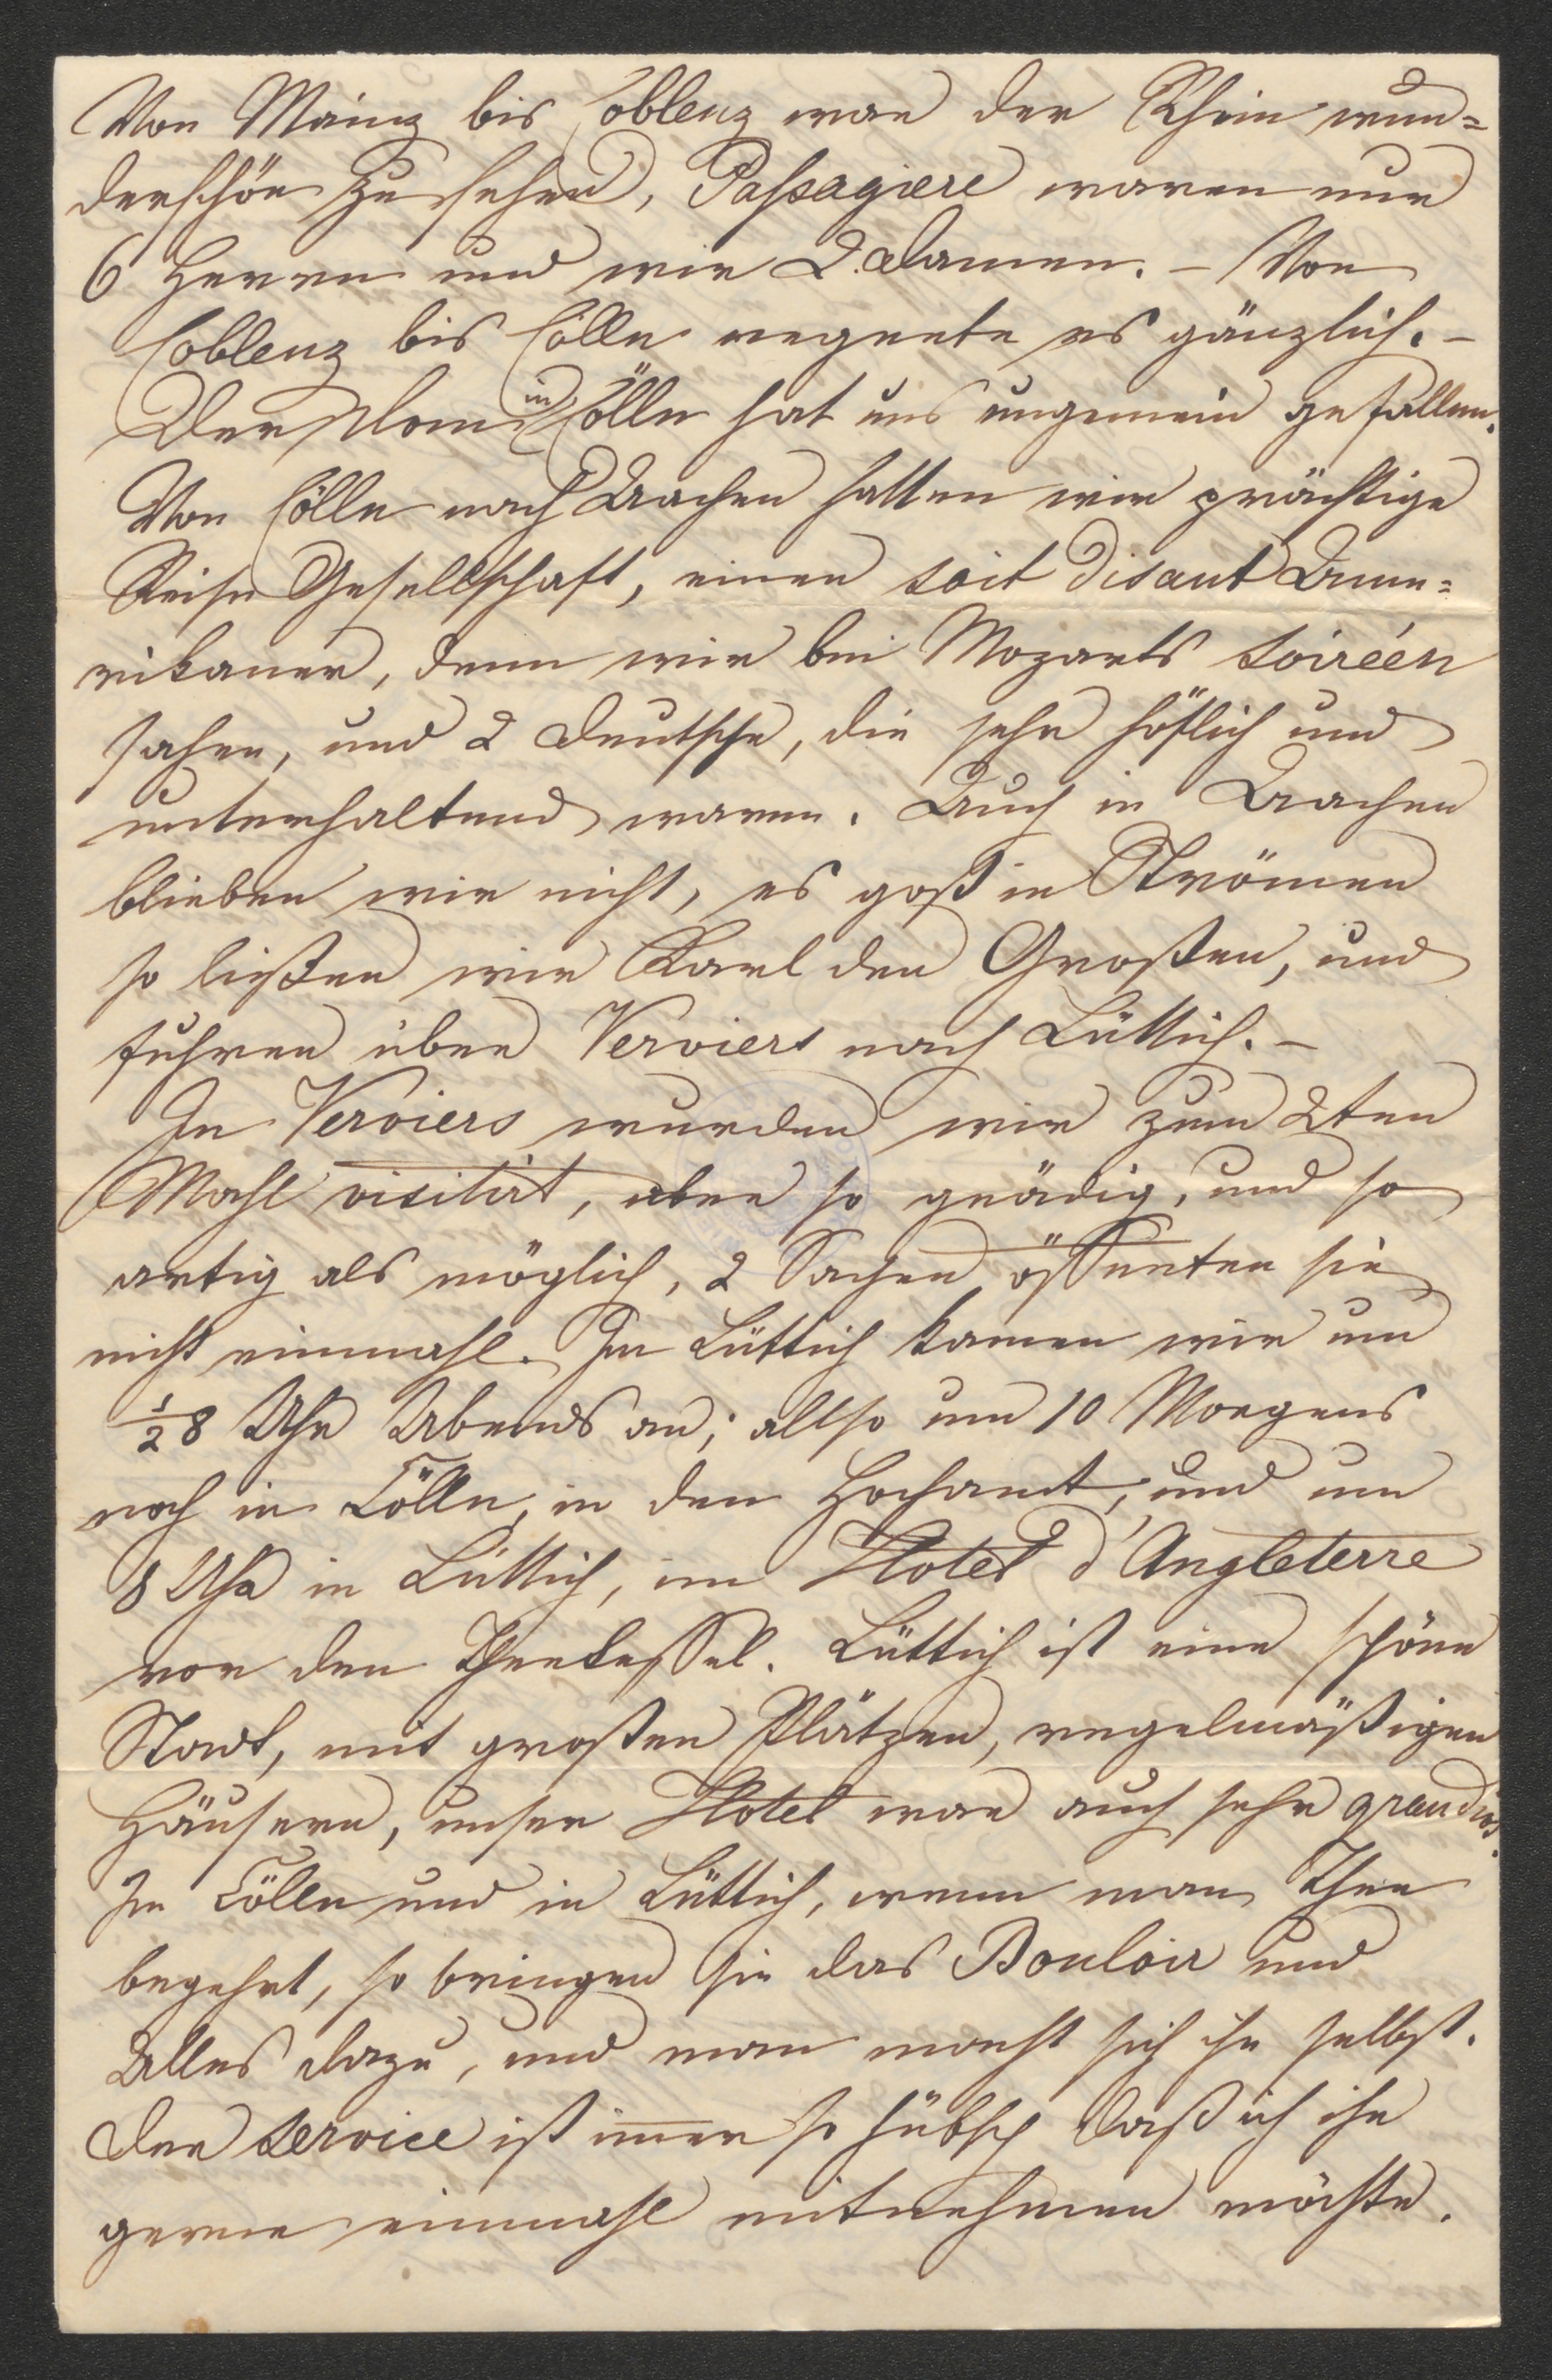 Von Mainz bis Coblenz war der Rhein wun=
derschön zu sehen, Passagiere waren nur
6 Herren und wir 2 Damen. – Von
Coblenz bis Cölln regnete es gänzlich. –
Der Dom in Cölln hat uns ungemein gefallen.
Von Cölln nach Aachen hatten wir prächtige
Reise Gesellschaft, einen soit disant Ame=
rikaner, denn wir bei Mozarts soiréen
sahen, und 2 Deutsche, die sehr höflich und
unterhaltend waren. Auch in Aachen
blieben wir nicht, es goß in Strömen
so ließen wir Karl den Großen, und
fuhren über Verviers nach Lüttich. –
In Verviers wurden wir zum 2ten
Mahl visitirt, aber so gnädig, und so
artig als möglich, 2 Sachen öffneten sie
nicht einmahl. In Lüttich kamen wir um
½8 Uhr Abends an; allso um 10 Morgens
noch in Cölln, in dem Hochamt, und um
8 Uhr in Lüttich, im Hotel d'Angleterre
vor den Theekessel. Lüttich ist eine schöne
Stadt, mit großen Plätzen, regelmäßigen
Häusern, unser Hotel war auch sehr grandios.
In Cölln und in Lüttich, wenn man Thee
begehrt, so bringen sie das Bouloir und
Alles dazu, und man macht sich ihn selbst.
Der service ist immer so hübsch daß ich ihn
gerne einmahl mitnehmen möchte.